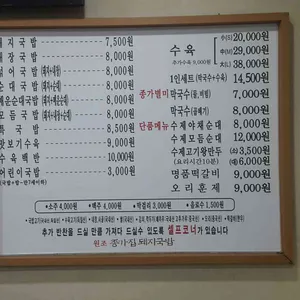 돼지국밥 7,500원
내장국밥 8,000원
8,000원
순대국밥 8,000원
매운순대국밥 8,500원
모듬국밥 8,500원
특국밥 8,500원
맛보기수육 9,000원
수육백반 10,000원
어린이국밥 3,000원
수육 (小) 20,000원
(中) 29,000원
추가수육 9,000원 (大) 38,000원
1인세트 (막국수+수육) 14,500원
종가별미 막국수 7,000원
막국수(곱빼기) 8,000원
단품메뉴 수제야채순대 8,000원
수제모듬순대 12,000원
수제고기왕만두 (소) 3,500원
(요리시간10분) (대) 6,000원
명품떡갈비 9,000원
오리훈제 9,000원
•소주 4,000원 •맥주 4,000원 •막걸리 3,000원 •음료수 1,500원
추가 반찬을 드실 만큼 가져다 드실수 있도록 셀프코너가 있습니다
원조 종가집 돼지국밥